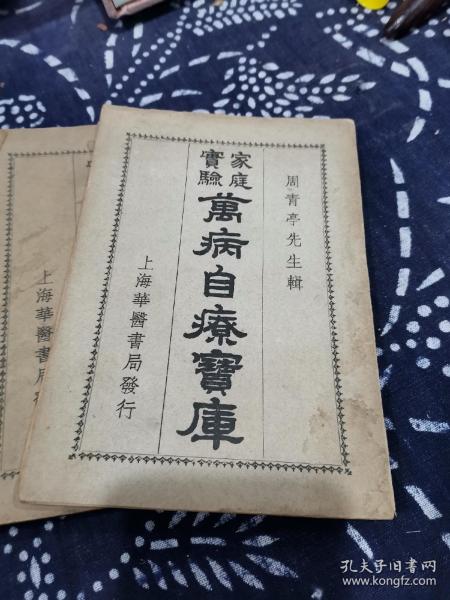 周青亭先生輯
家庭
實驗
萬病自療寶庫
上海華醫書局發行
上海華醫書局
孔夫子旧书网
www.kongfz.com